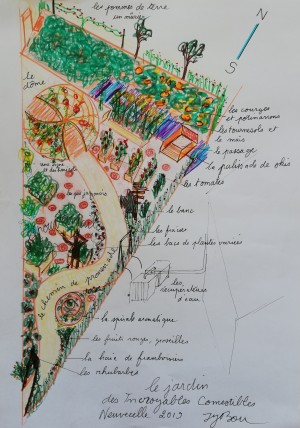 les pommes de terre
en mixage
N
S
le
dôme
les courges
et potimarrons
les tournesols et
le maïs
le passage
la palissade de
les tomates
le banc
les fraises
les bacs de plantes variées
les
récupérateurs
d'eau
le chemin de promenade
la spirale aromatique
les fruits rouges, groseilles
la haie de framboisiers
les rhubarbes
le jardin
des Incroyables Comestibles
Neuvecelle 2019